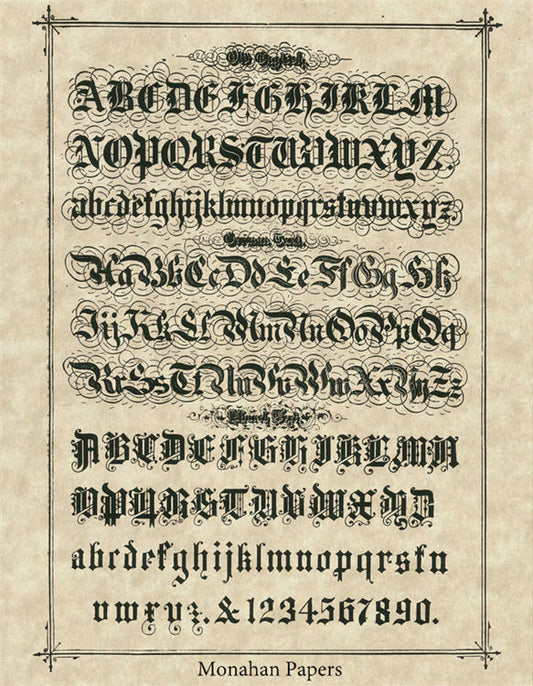 Old English.
ABCDEFGHIJKLM
NOPQRSTUVWXYZ.
abcdefghijklmnopqrstuvwxyz.
German Text.
AaBbCcDdEeFfGgHh
IijKkLlMmNnOoPpQq
RrSsTtUuVvWwXxYyZz
Church Text
ABCDEFGHIJKLMN
OPQRSTUVWXYZ
abcdefghijklmnopqrstu
vwxyz. & 1234567890.
Monahan Papers